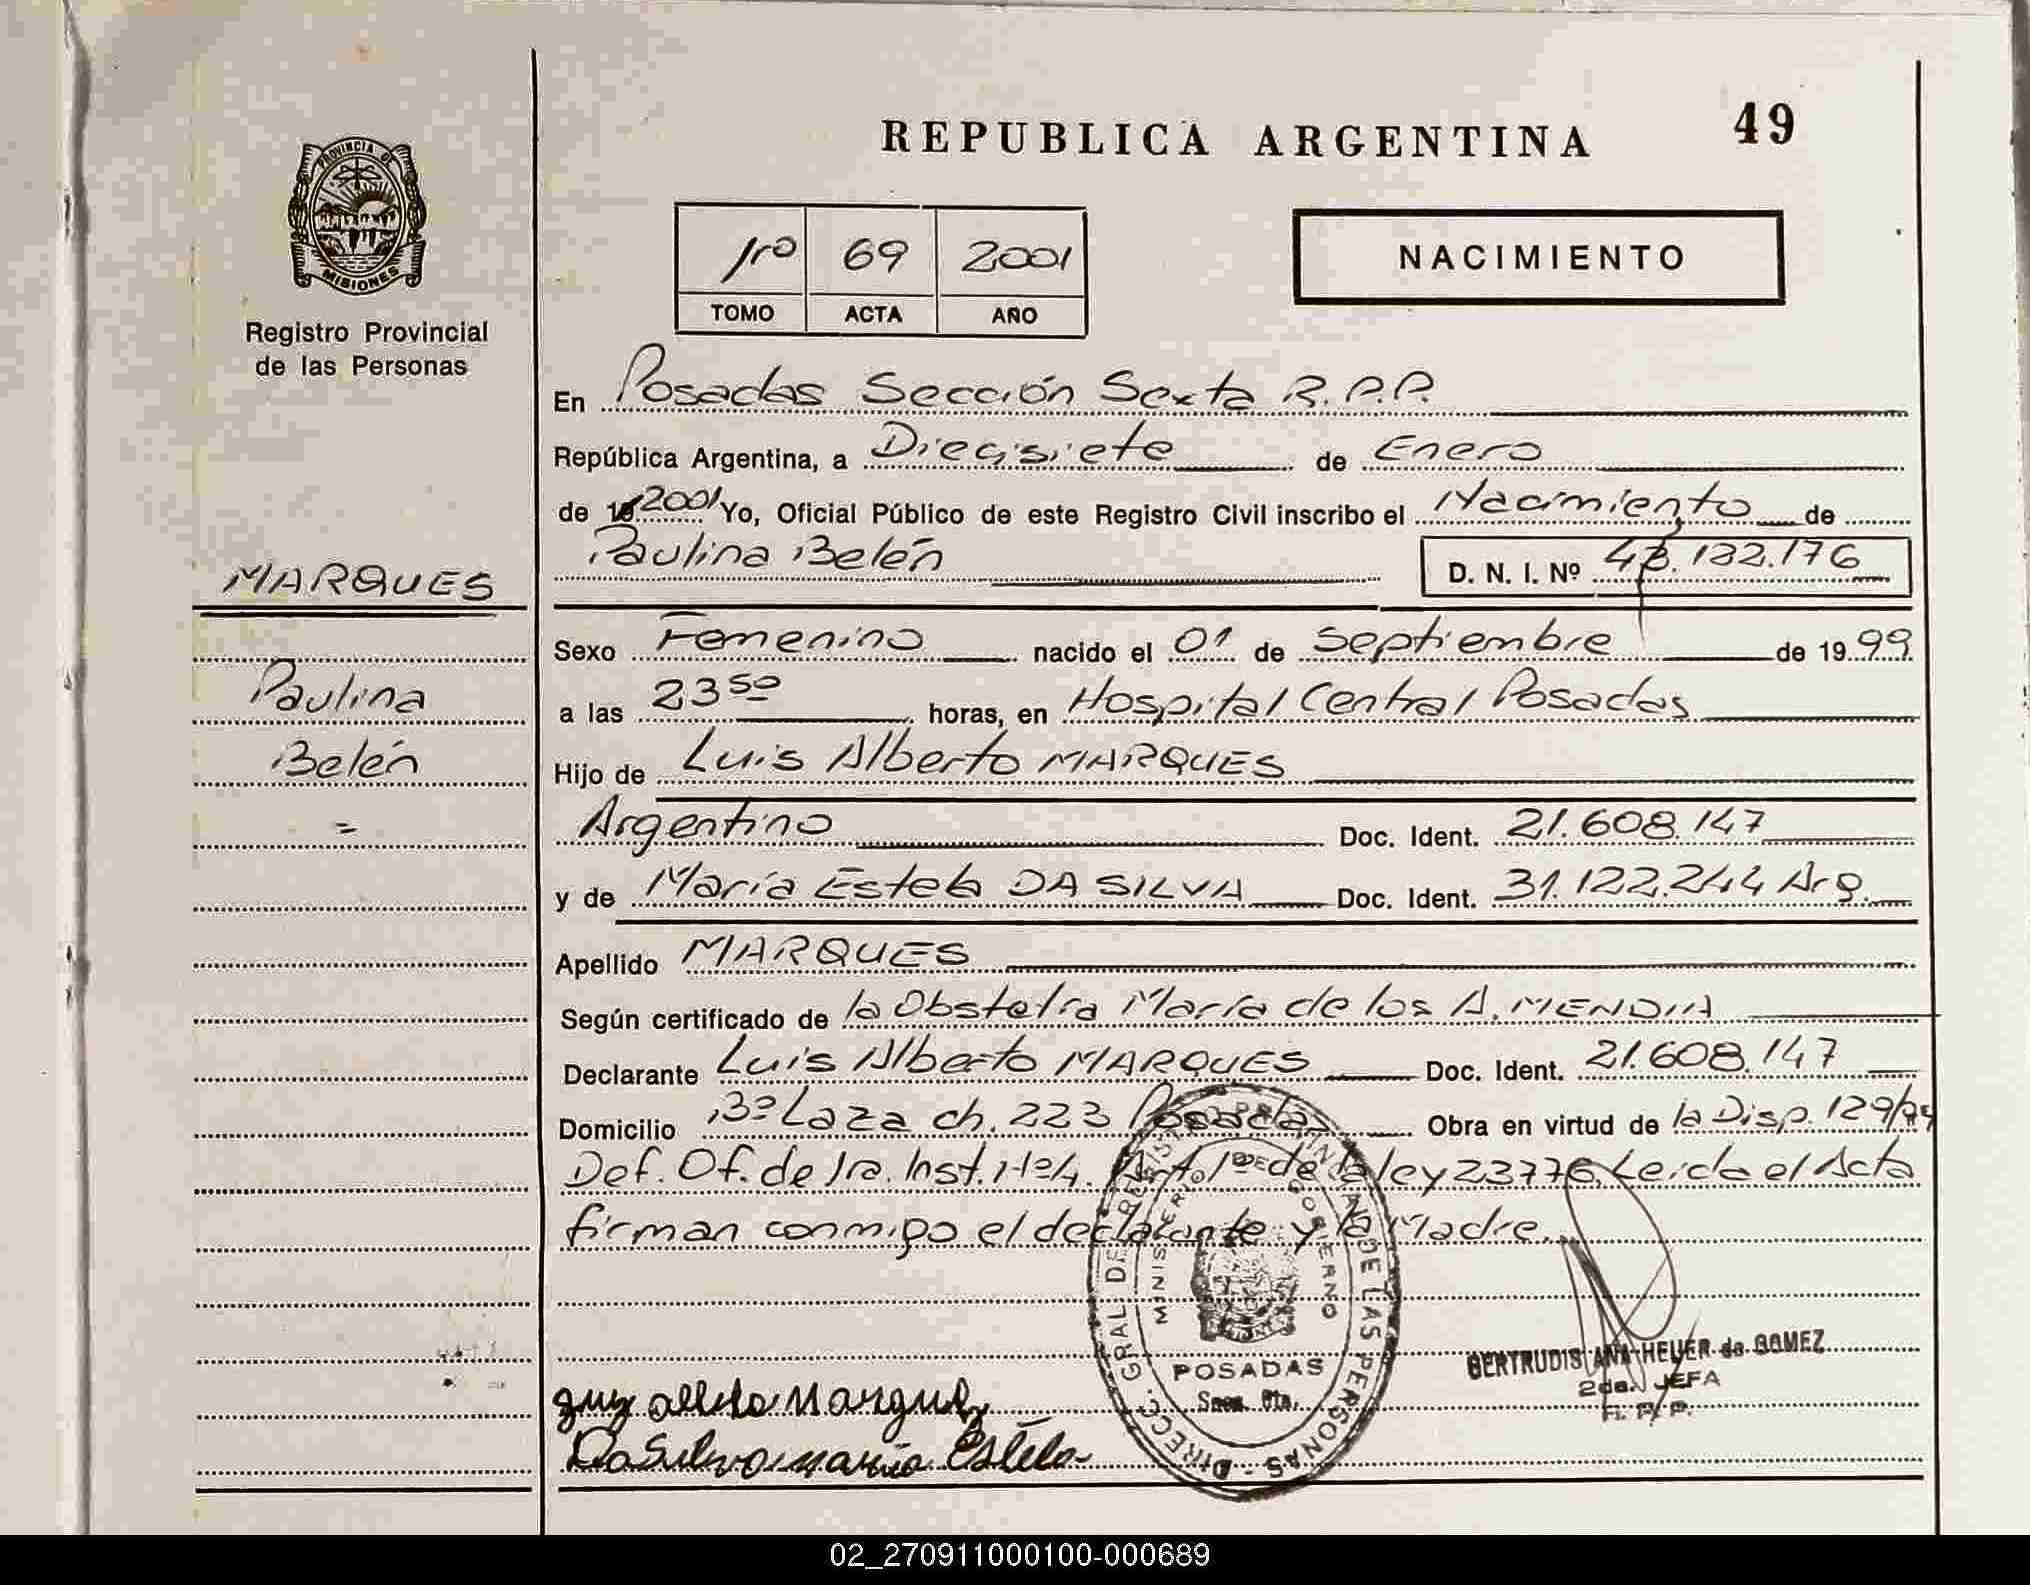 REPUBLICA ARGENTINA 49
PROVINCIA DE
MISIONES
Registro Provincial
de las Personas
1ro 69 2001
TOMO ACTA AÑO
NACIMIENTO
En Posadas Sección Sexta R.P.P.
República Argentina, a Diecisiete de Enero
de 2001 Yo, Oficial Público de este Registro Civil inscribo el Nacimiento de
Paulina Belén D. N. I. Nº 132.176
MARQUES
Paulina
Belén
Sexo Femenino nacido el 01 de Septiembre de 1999
a las 23 50 horas, en Hospital Central Posadas
Hijo de Luis Alberto MARQUES
Argentino Doc. Ident. 21.608.147
y de María Estela DA SILVA Doc. Ident. 31.122.244 Arg.
Apellido MARQUES
Según certificado de la Obstetra María de los A. MENDIA
Declarante Luis Alberto MARQUES Doc. Ident. 21.608.147
Domicilio Bº Laza ch. 223 Posadas Obra en virtud de la Disp. 129/99
Def. Of. de 1ra. Inst. Nº4. Art. 1º de la ley 23776. Leída el Acta
firman conmigo el declarante y la Madre.
DIRECC. GRAL DE REGISTRO PROVINCIAL DE LAS PERSONAS
MINISTERIO DE GOBIERNO
POSADAS
Secc. 6ta.
GERTRUDIS ANA HEUER de GOMEZ
2da. JEFA
R. P. P.
Da Silva María Estela
02_270911000100-000689